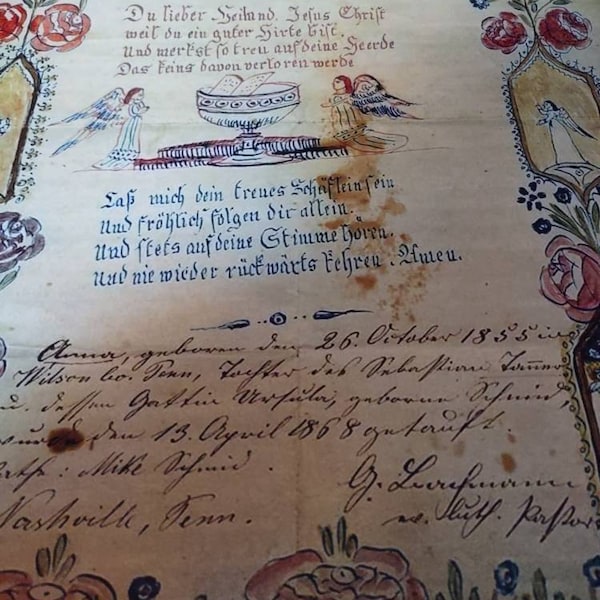 Du lieber Heiland, Jesus Christ
weil du ein guter Hirte bist.
Und merkst so treu auf deine Heerde
Das keins davon verloren werde
Laß mich dein treues Schäflein sein
Und fröhlich folgen dir allein.
Und stets auf deine Stimme hören.
Und nie wieder rückwärts kehren. Amen.
Anna, geboren den 26. October 1855 in
Wilson Co. Tenn, Tochter des Sebastian Tanner
u. dessen Gattin Ursula, geborne Schmid,
wurde den 13. April 1868 getauft.
Pathe: Mike Schmid.
G. Bachmann
Nashville, Tenn.
ev. luth. Pastor